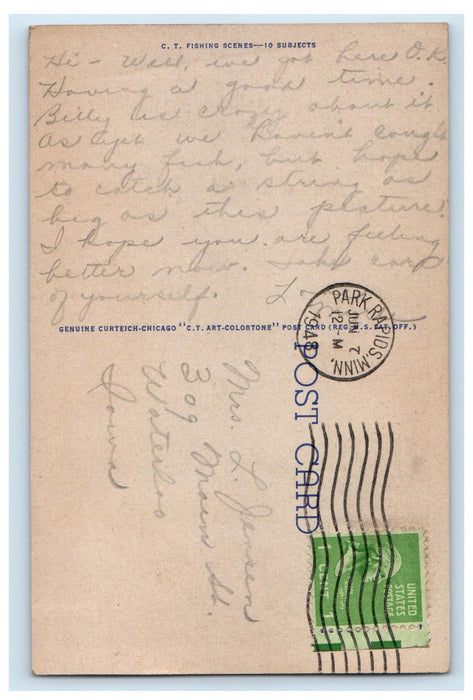 C. T. FISHING SCENES—10 SUBJECTS
Hi - Well, we got here O.K.
Having a good time.
Billy is crazy about it
As yet we haven't caught
many fish, but hope
to catch a string as
big as this picture.
I hope you are feeling
better now. Take care
of yourself.
GENUINE CURTEICH-CHICAGO "C.T. ART-COLORTONE" POST CARD (REG. U.S. PAT. OFF.)
PARK RAPIDS, MINN.
JUN 7
12 - M
1948
POST CARD
Mrs. L. Jensen
309 Main St.
Waterloo
Iowa
UNITED
STATES
POSTAGE
1 CENT 1